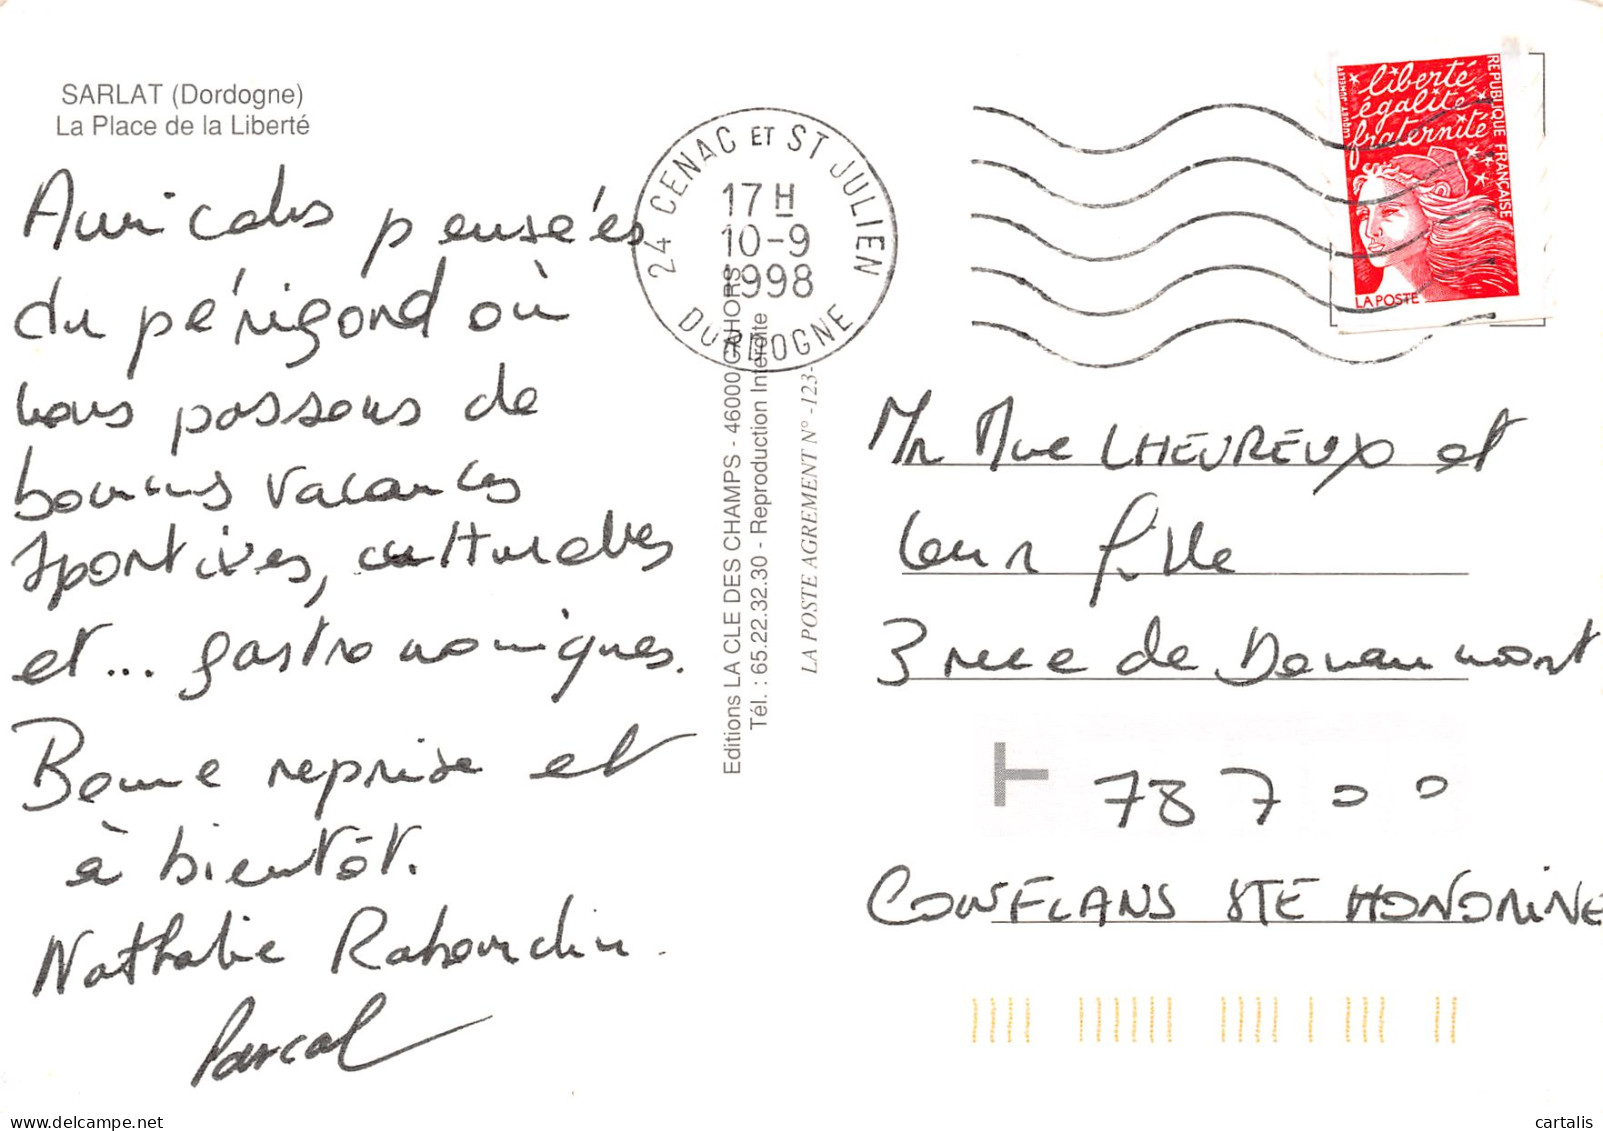 SARLAT (Dordogne)
La Place de la Liberté
Amicales pensées
du périgord où
nous passons de
bonnes vacances
sportives, culturelles
et... gastronomiques.
Bonne reprise et
à bientôt.
Nathalie Rabourdin.
Pascal
24 CENAC ET ST JULIEN
17 H
10-9
1998
DORDOGNE
Editions LA CLE DES CHAMPS - 46000 CAHORS
Tél. : 65.22.32.30 - Reproduction Interdite
LA POSTE AGREMENT N° -123-
liberté
égalité
fraternité
RÉPUBLIQUE FRANÇAISE
LA POSTE
Mr Mme LHEUREUX et
leur fille
3 rue de Douaumont
T 78700
CONFLANS STE HONORINE
delcampe.net
cartalis